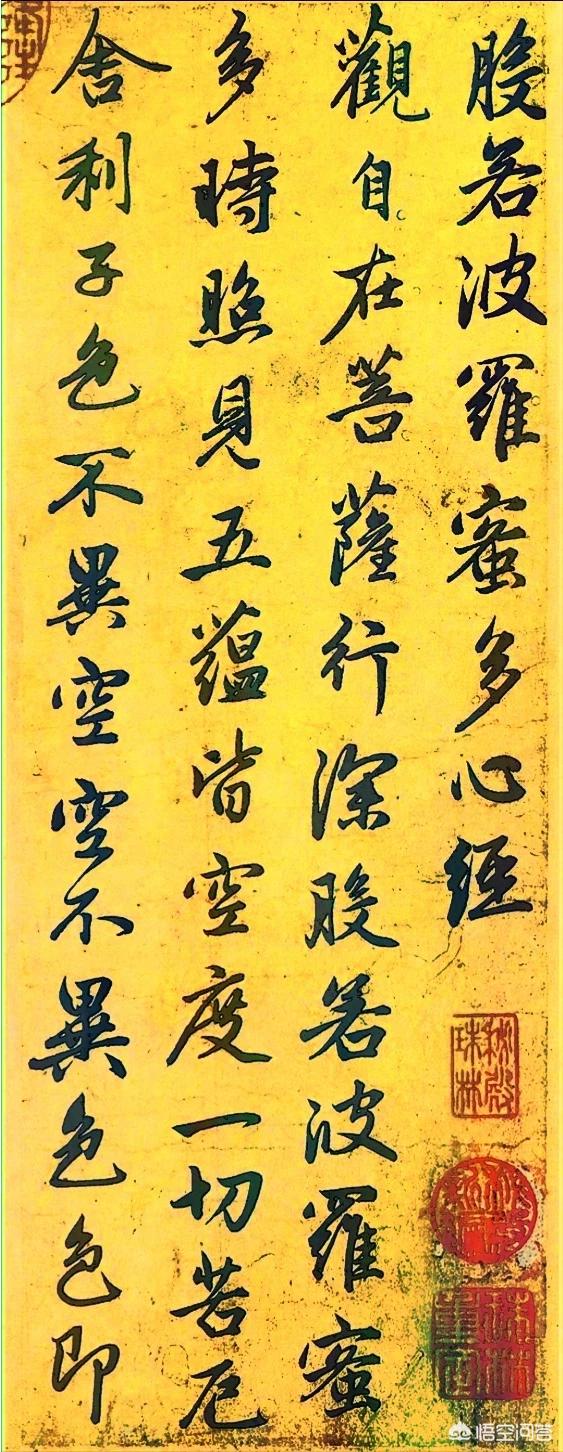 般若波羅蜜多心經
觀自在菩薩行深般若波羅蜜
多時照見五蘊皆空度一切苦厄
舍利子色不異空空不異色色即
秘殿珠林
悟空问答